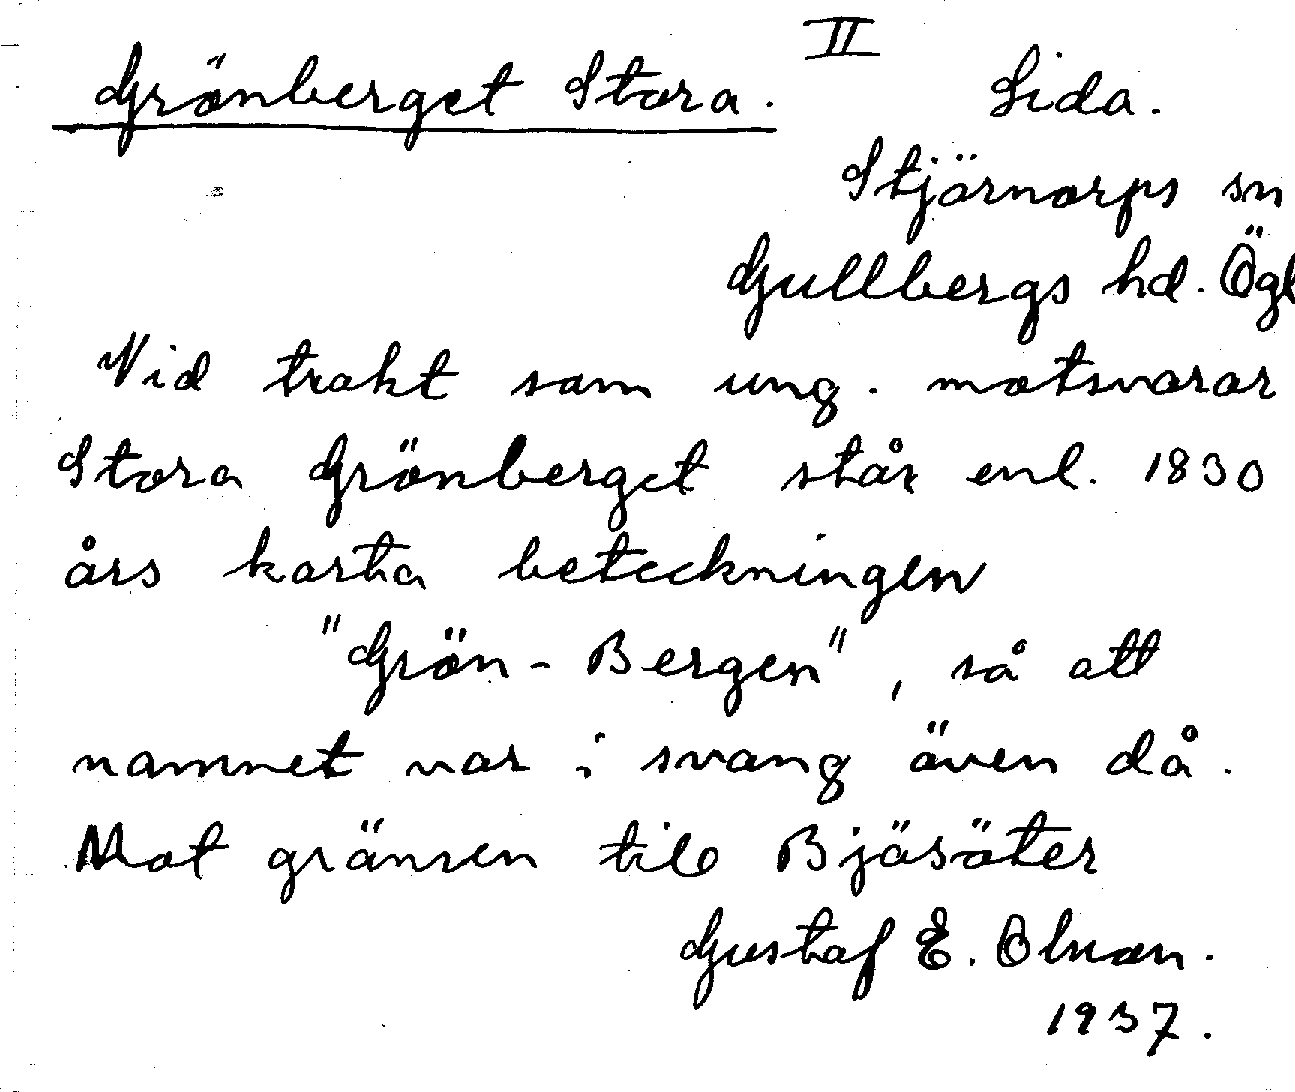 II
Grönberget Stora. Sida.
Stjärnorps sn
Gullbergs hd. Ögl
Vid trakt som ung. motsvarar
Stora Grönberget står enl. 1830
års karta beteckningen
"Grön-Bergen", så att
namnet var i svang även då.
Mot gränsen till Bjäsäter
Gustaf E. Olsson.
1937.